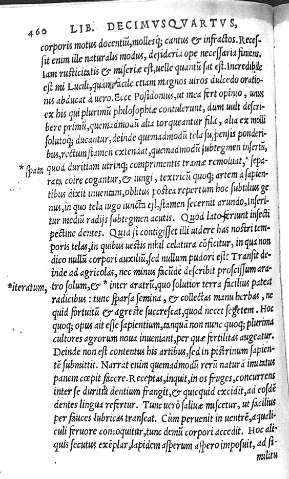 460 LIB. DECIMVSQVARTVS,
corporis motus docentiũ, mollesq; cantus & infractos. Recess-
sit enim ille naturalis modus, desideria ope necessaria finiens.
Iam rusticitatis & miseriæ est, uelle quantũ sat est. Incredibile
est mi Lucili, quàm facile etiam magnos uiros dulcedo oratio-
nis abducat à uero. Ecce Posidonius, ut mea fert opinio, unus
ex his qui plurimũ philosophiæ contulerunt, dum uult descri-
bere primũ, quemadmodũ alia torqueantur fila, alia ex molli
solutoq; ducantur, deinde quemadmodũ tela suspensis ponderi-
bus, rectum stamen extendat, quemadmodũ subtegmen insertũ,
quod duritiam utrinq; comprimentis tramæ remolliat, * sepa-
* spata rats coire cogantur, & iungi, textricũ quoq; artem à sapien-
tibus dixit inuentam, oblitus postea repertum hoc subtilius ge-
nus, in quo tela iugo iuncta est, stamen secernit arundo, inseri-
tur mediũ radijs subtegmen acutis. Quod lato feriunt insecti
pectine dentes. Quid si contigisset illi uidere has nostri tem-
poris telas, in quibus uestis nihil celatura cõficitur, in qua non
dico nullũ corpori auxiliũ, sed nullum pudori est? Transit de-
inde ad agricolas, nec minus facũde describit proscissum ara-
*iteratum, tro solum, & * inter aratrũ, quo solutior terra facilius pateat
radicibus : tunc sparsa semina, & collectas manu herbas, ne
quid fortuitũ & agreste succrescat, quod necet segetem. Hoc
quoq; opus ait esse sapientium, tanquã non nunc quoq; plurima
cultores agrorum noua inueniant, per quæ fertilitas augeatur.
Deinde non est contentus his artibus, sed in pistrinum sapien-
tẽ submittit. Narrat enim quemadmodũ rerũ natura imitatus
panem cœpit facere. Receptas, inquit, in os fruges, concurrens
inter se duritia dentium frangit, & quicquid excidit, ad eosdẽ
dentes lingua refertur. Tunc uerò saliuæ miscetur, ut facilius
per fauces lubricas transeat. Cùm peruenit in uentrẽ, aquali-
culi feruore concoquitur, tunc demũ corpori accedit. Hoc ali-
quis secutus exẽplar, lapidem asperum aspero imposuit, ad si-
militu